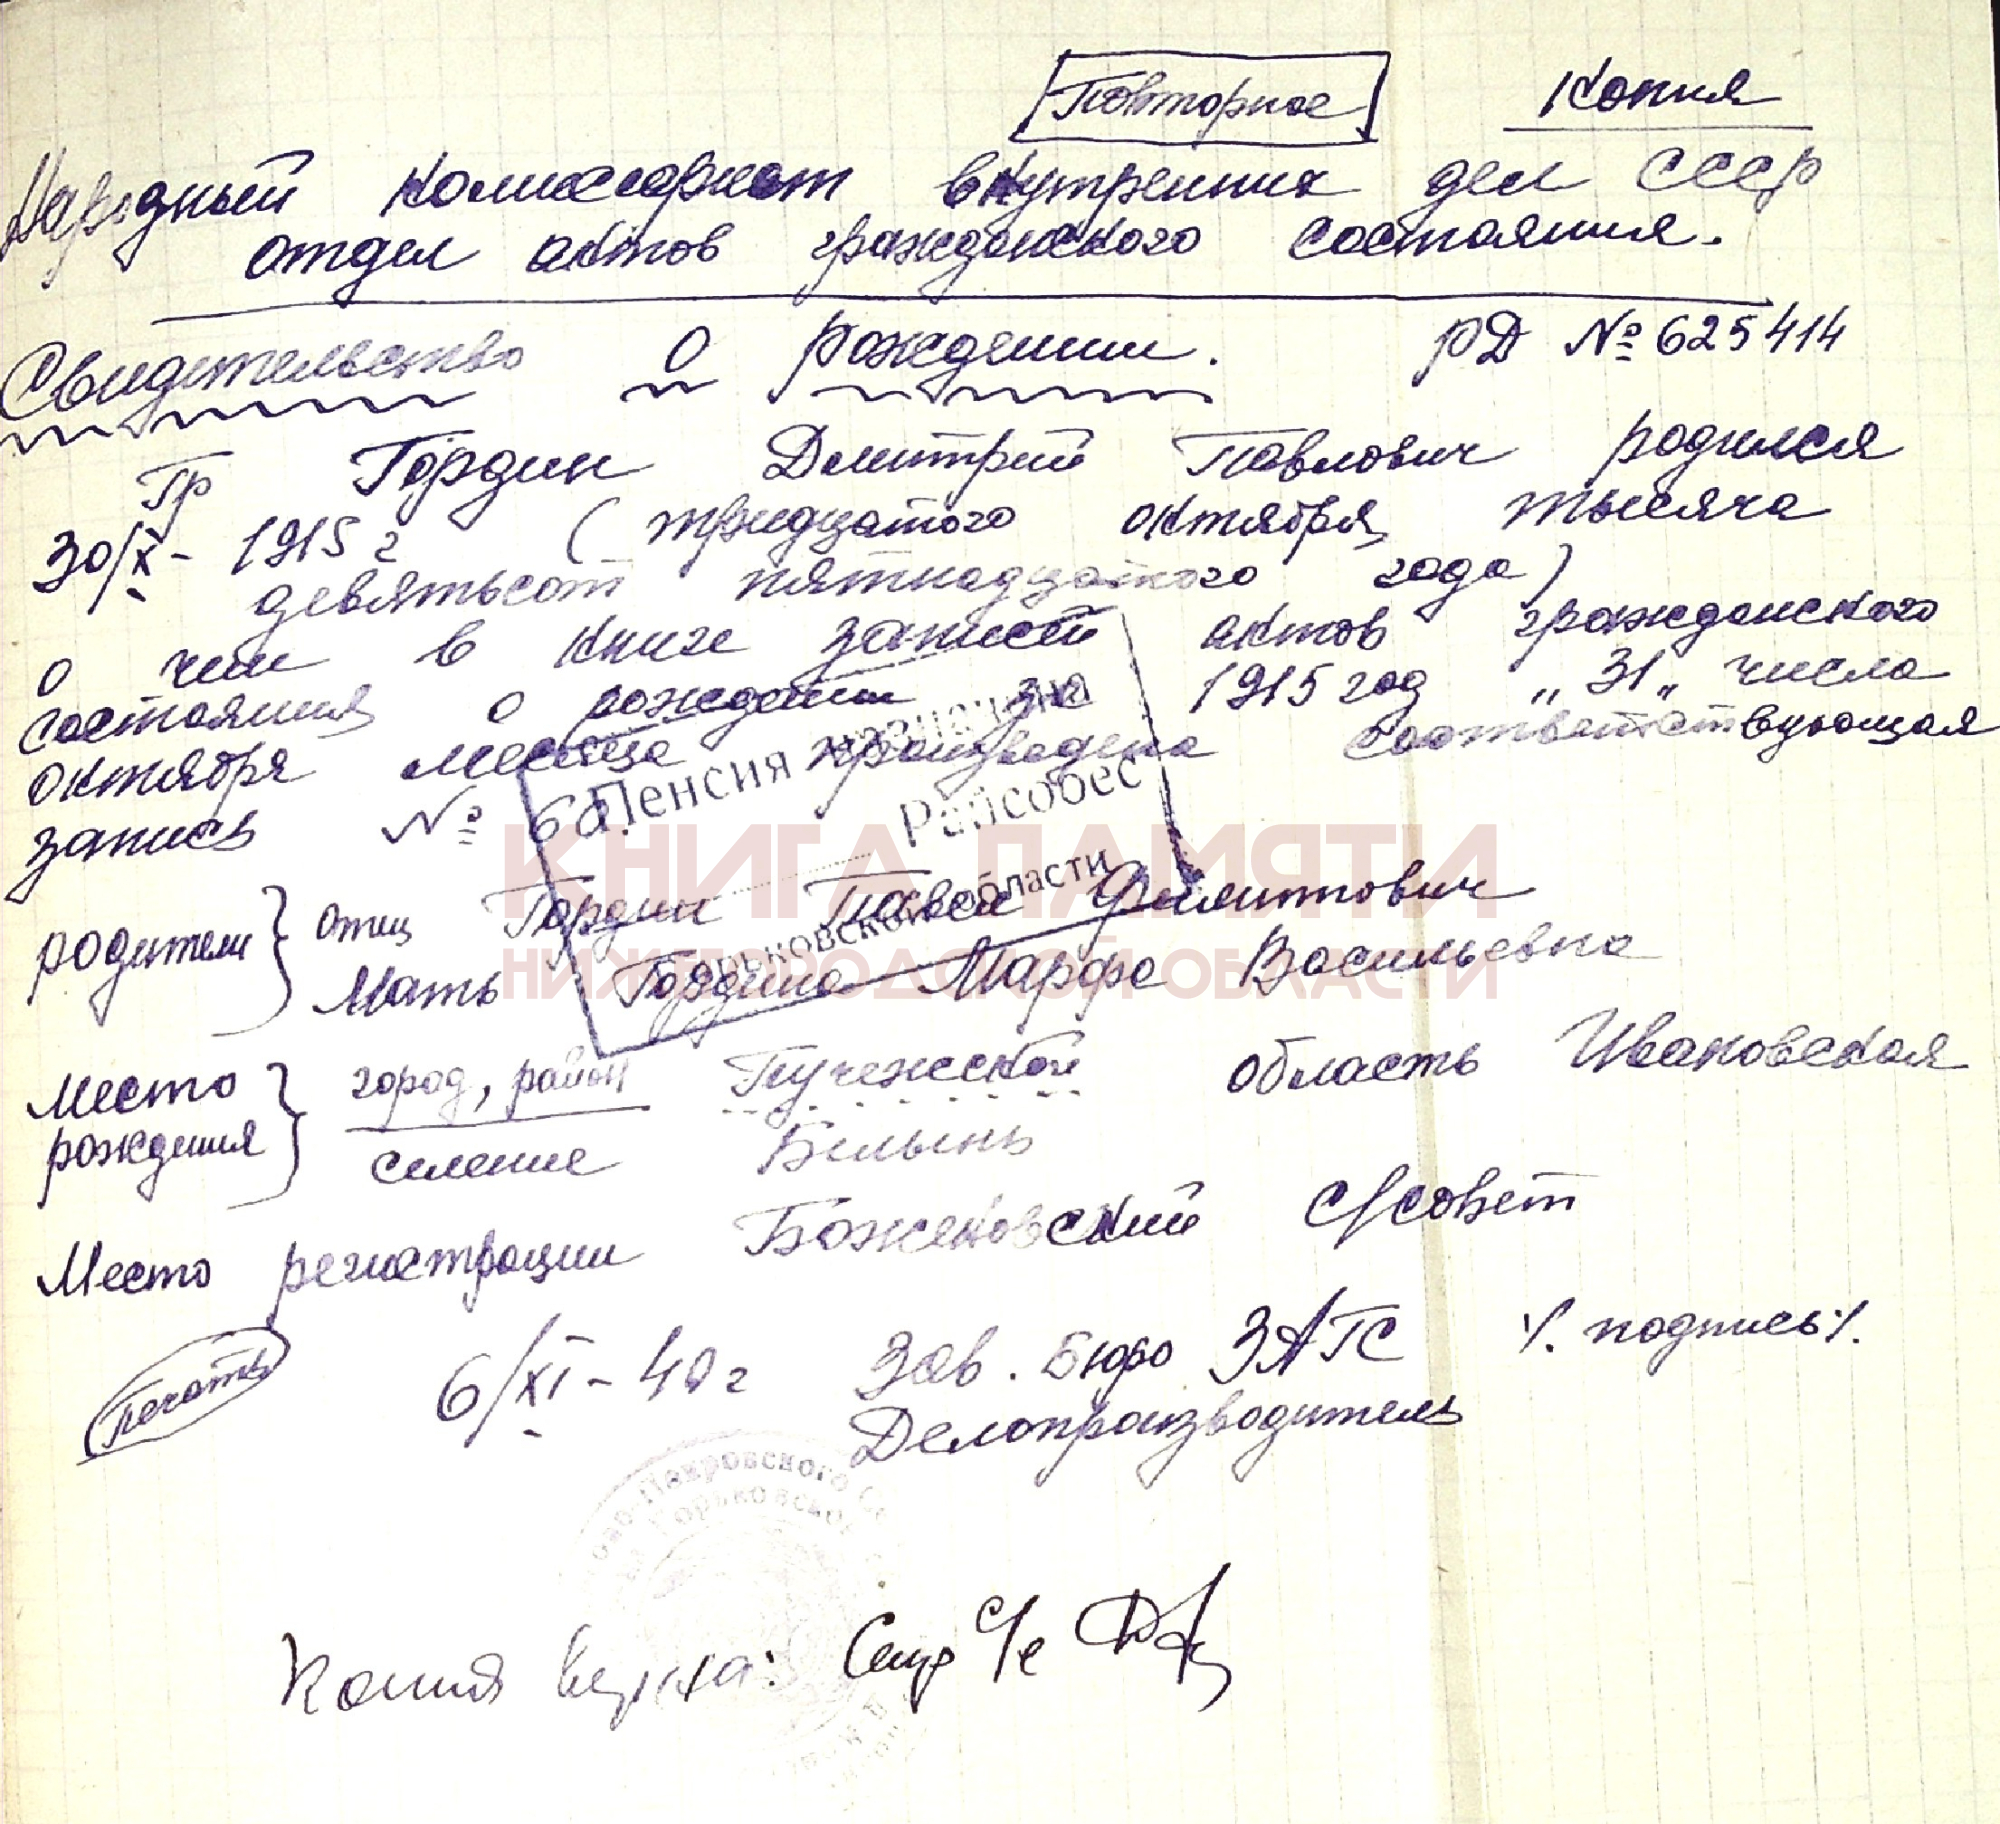 Повторное Копия
Народный комиссариат внутренних дел СССР
отдел актов гражданского состояния.
Свидетельство о рождении. РД № 625414
Гр Гордин Дмитрий Павлович родился
30/X - 1915 г (тридцатого октября тысяча
девятьсот пятнадцатого года)
о чем в книге записей актов гражданского
состояния о рождении за 1915 год „31„ числа
октября месяца произведена соответствующая
запись № 60
Пенсия назначена
Райсобес
Горьковской области
КНИГА ПАМЯТИ
НИЖЕГОРОДСКОЙ ОБЛАСТИ
родители отец Гордин Павел Филиппович
Мать Гордина Марфа Васильевна
Место рождения город, район Пучежской область Ивановская
селение Белынь
Место регистрации Боженовский с/совет
Печать 6/XI - 40 г Зав. Бюро ЗАГС ./. подпись ./.
Делопроизводитель
Покровского
Горьковской
Копия верна: Секр с/с